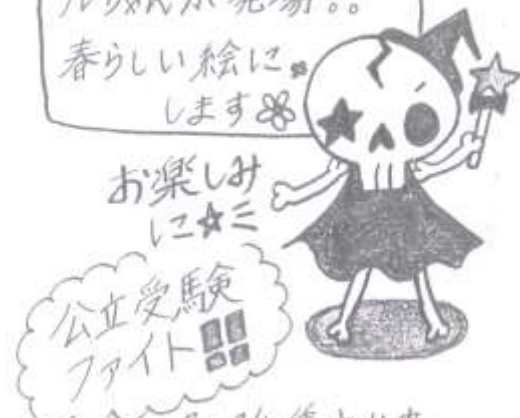 ルちゃんが登場!!
春らしい絵に
します
お楽しみ
に☆
公立受験
ファイト!!